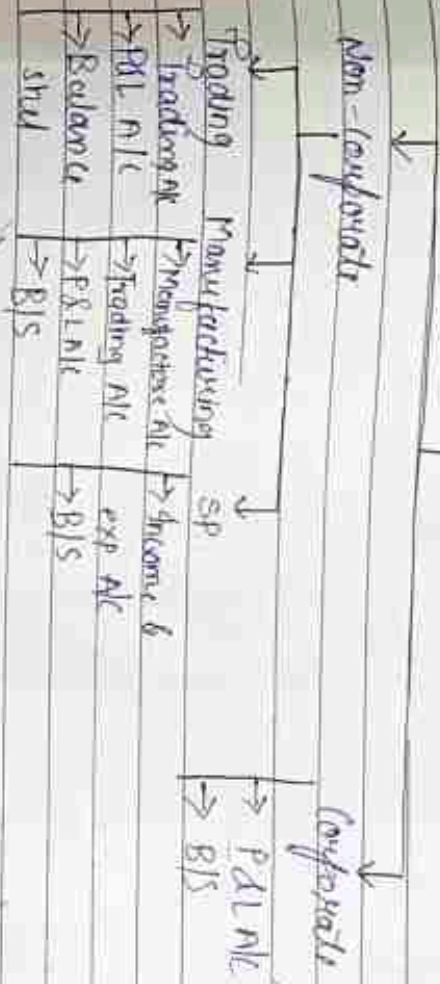 Non-Corporate
Corporate
Trading
Manufacturing
SP
→ Trading A/c
→ P&L A/c
→ Balance
sheet
→ Manufacture A/c
→ Trading A/c
→ P&L A/c
→ B/S
→ Income &
exp A/c
→ B/S
→ P&L A/c
→ B/S